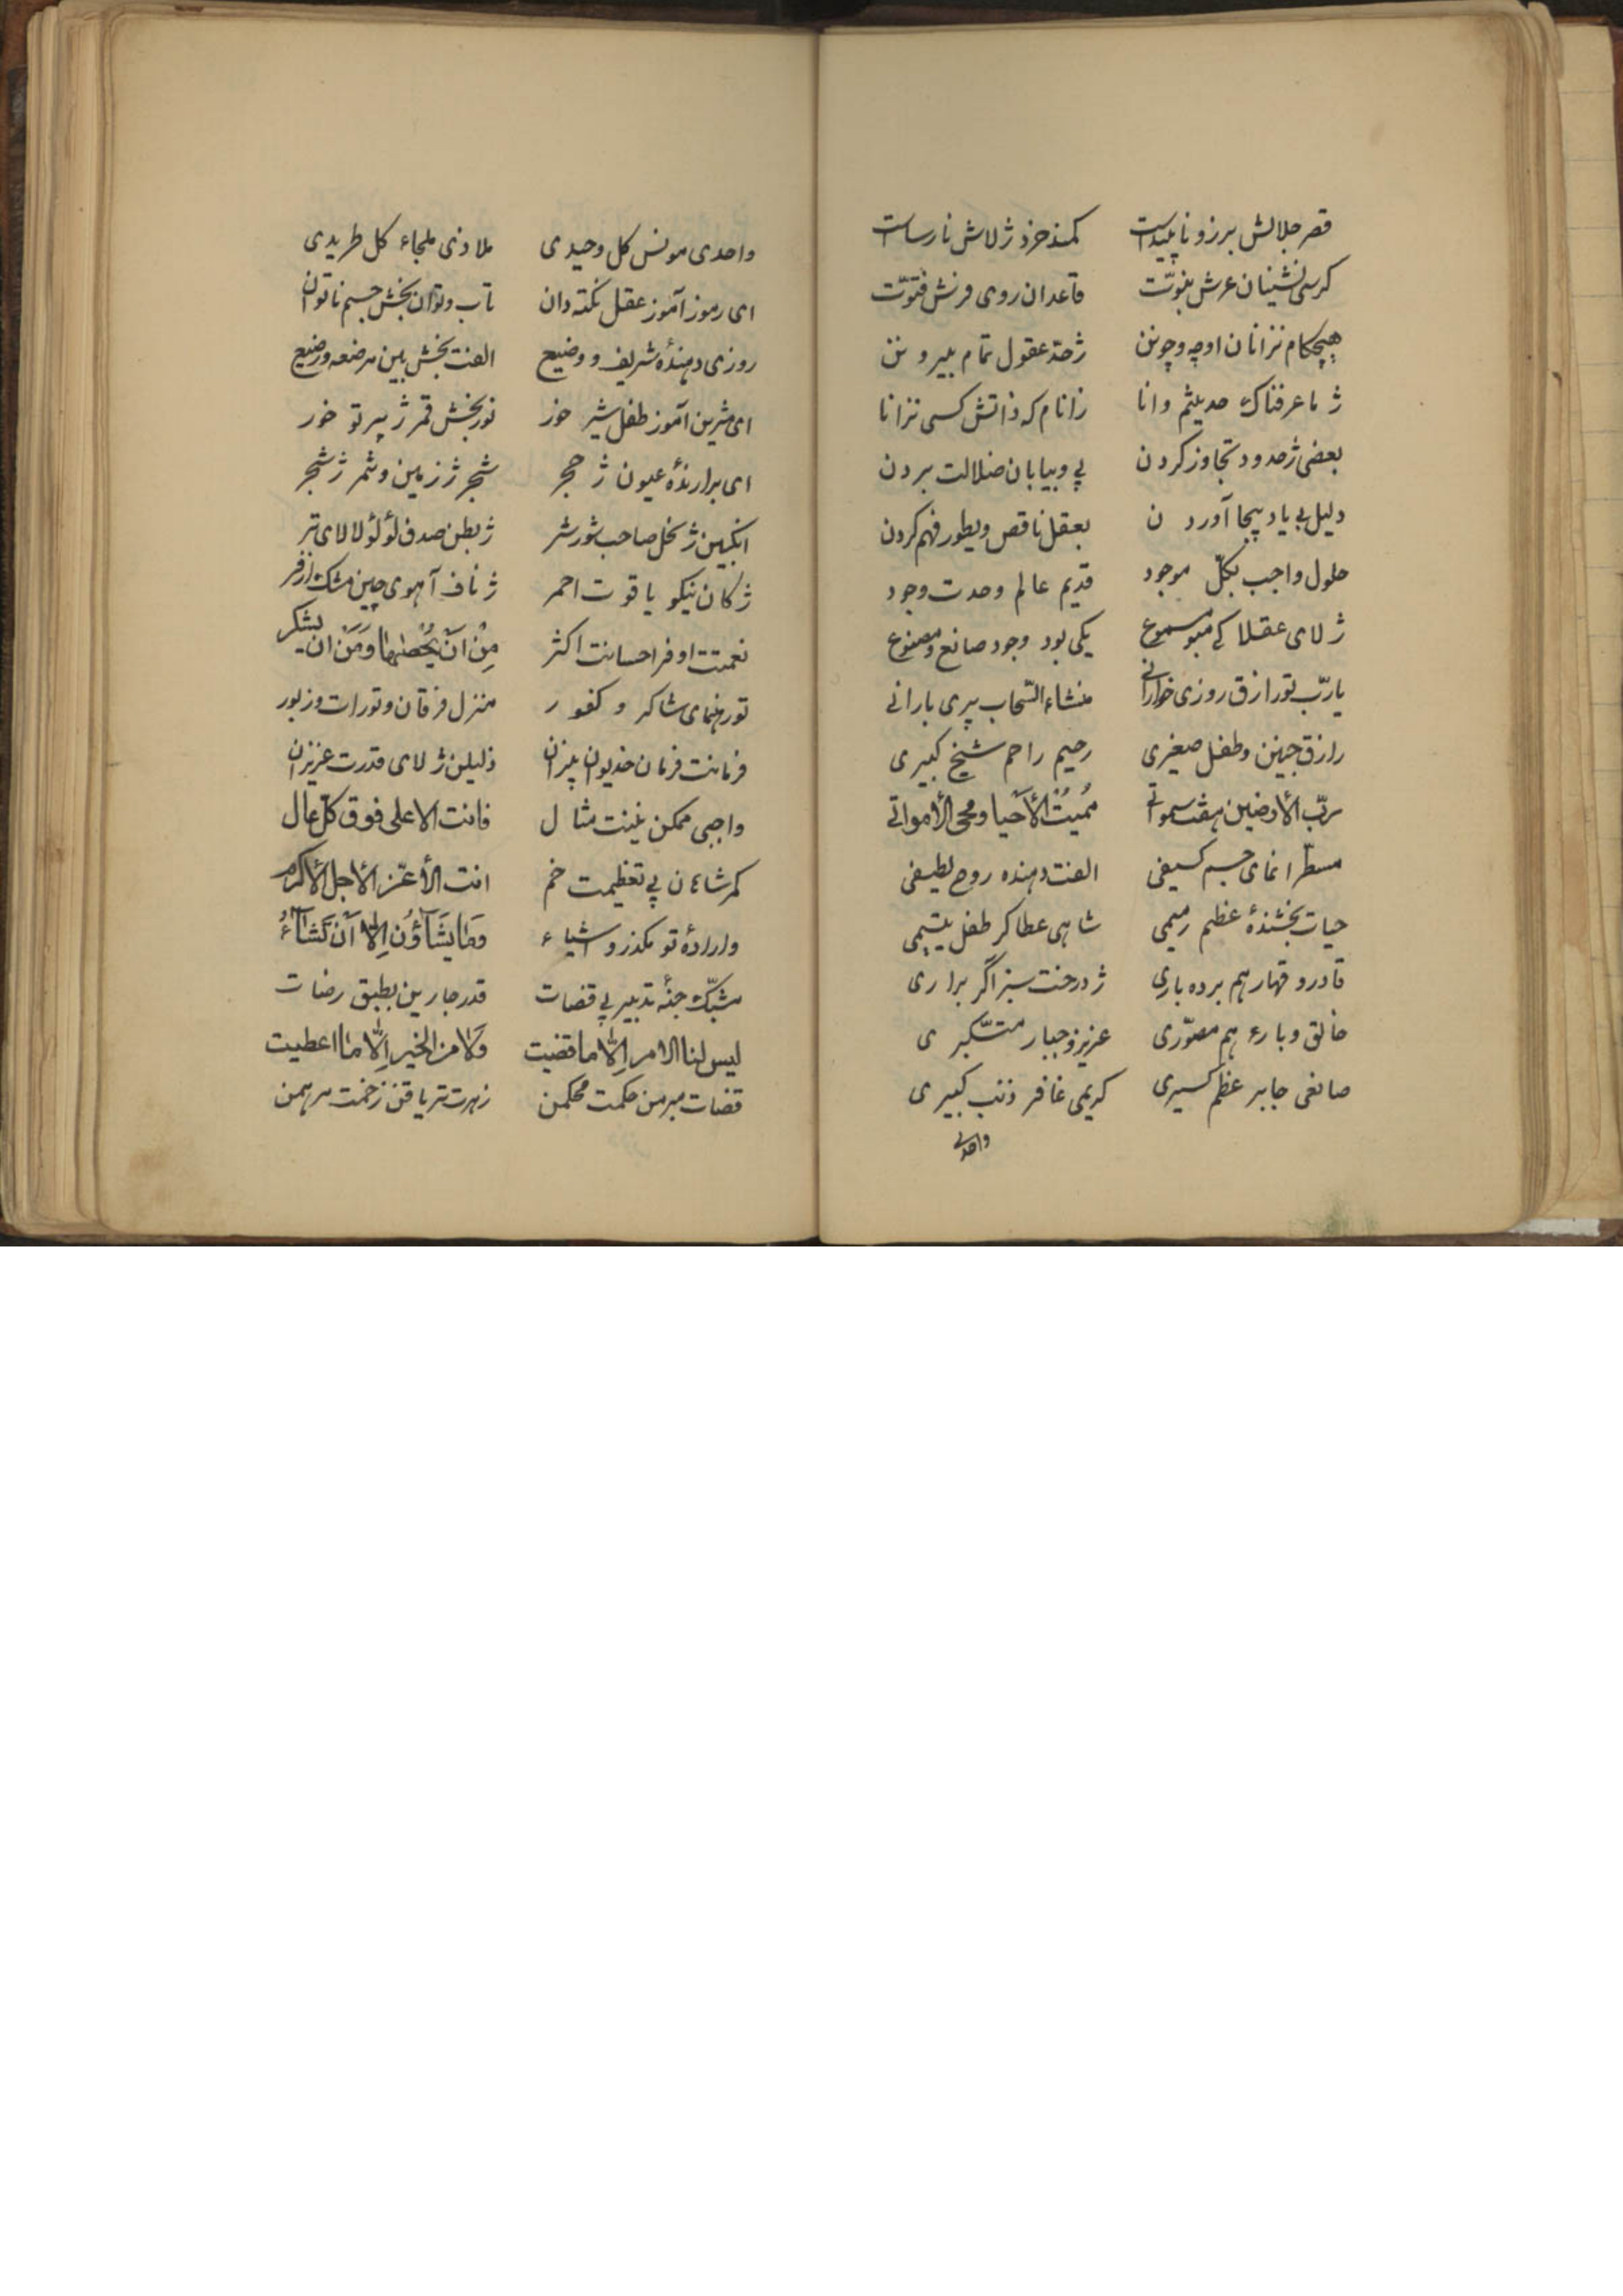 قصر جلالش برزو ناپیداست کمند خرد ژلاش نارساست
کرسی نشینان عرش نبوّت قاعدان روی فرش فتوّت
هیچکام نزانان اوچه و چونن ژ حدّ عقول تمام بیرونن
ژ ما عرفناک حدیثم وانا زانام که ذاتش کسی نزانا
بعضی ژ حدود تجاوز کردن پی و بیابان ضلالت بردن
دلیل بی یاد پیجا آوردن بعقل ناقص و یطور فهم کردن
حلول واجب بکلّ موجود قدیم عالم وحدت وجود
ژلای عقلا کی مبو مسموع یکی بود وجود صانع و مصنوع
یا ربّ تو رازق روزی خوارانی منشاء السّحاب پری بارانی
رازق جنین و طفل صغیری رحیم راحم شیخ کبیری
ربّ الأرضین هفت سمواتی مُمیتُ الأحیا و محی الأمواتی
مسطرانمای جسم کسیفی الفت دهنده روح لطیفی
حیات بخشندۀ عظم رمیمی شاهی عطاکر طفل یتیمی
قادر و قهار هم برده باری ژ درخت سبز اگر براری
خالق و بارء هم مصوّری عزیز و جبار متکّبری
صانعی جابر عظم کسیری کریمی غافر ذنب کبیری
واحدی
واحدی مونس کل وحیدی ملاذی ملجاء کل طریدی
ای رموز آموز عقل نکته دان تاب و توان بخش جسم ناتوان
روزی دهندۀ شریف و وضیع الفت بخش بین مرضعه و رضیع
ای شربن آموز طفل شیر خور نور بخش قمر ژ پرتو خور
ای برارندۀ عیون ژ حجر شجر ژ زمین و ثمر ژ شجر
انگبین ژ نخل صاحب شور شر ژ بطن صدف لؤلؤ لالای تر
ژ کان نیکو یاقوت احمر ژ ناف آهوی چین مشک ازفر
نعمتت اوفر احسانت اکثر مِنْ اَنْ یُحْصٰیها وَمَنْ اَن یشکر
تو رهنمای شاکر و کفور منزل فرقان و تورات و زبور
فرمانت فرمان خدیوان پیزان ذلیلن ژلای قدرت عزیزان
واجبی ممکن نینت مثال فانت الاعلی فوق کلّ عال
کمر شاهان پی تعظیمت خم انت الأعزّ الأجل الأکرم
و ارادۀ تو مکذرو اشیاء وَمٰا یَشٰآؤُنَ اِلّا اَنْ تَشٰآءُ
مشبّک جنۀ تدبیر پی قضات قدر جارین بطبق رضات
لیس لنا الامر اِلّا ما قضیت وَلا من الخیر اِلّا ما اعطیت
قضات مبرمن حکمت محکمن زهرت تریاقن زخمت مرهمن